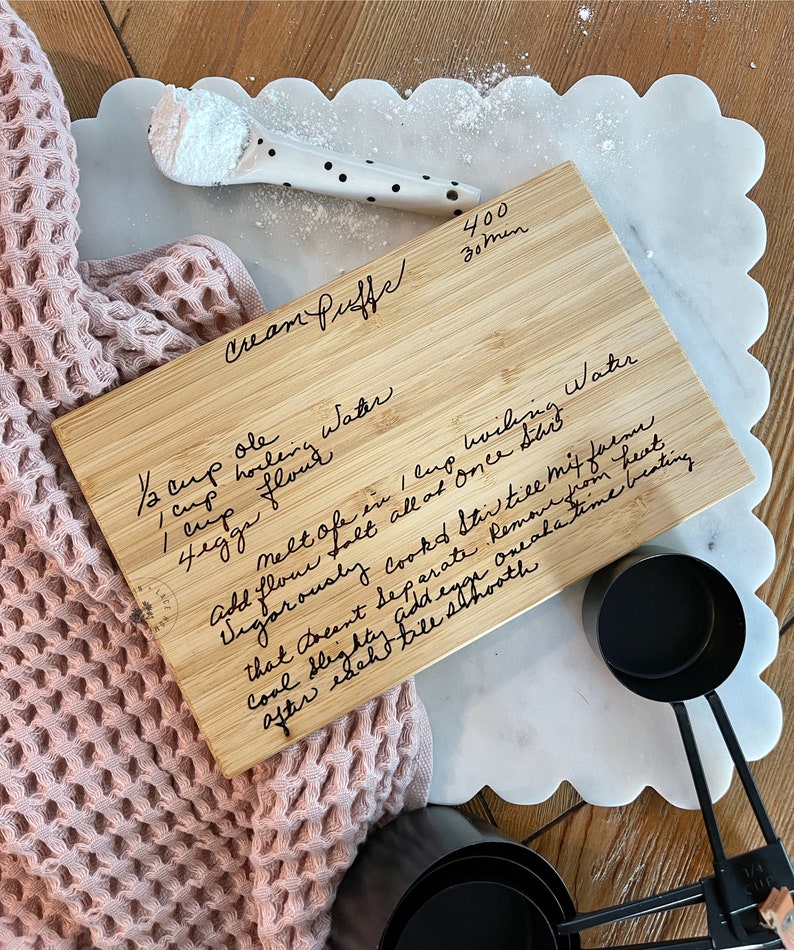 400
30 Min
Cream Puffs
1/2 cup Ole
1 cup boiling Water
1 cup flour
4 eggs
Melt Ole in 1 cup boiling Water
add flour salt all at once Stir
Vigorously Cook & Stir till Mix forms
that Doesnt Separate. Remove from heat
Cool Slightly add eggs one at a time beating
after each till Smooth
1/4
CUP